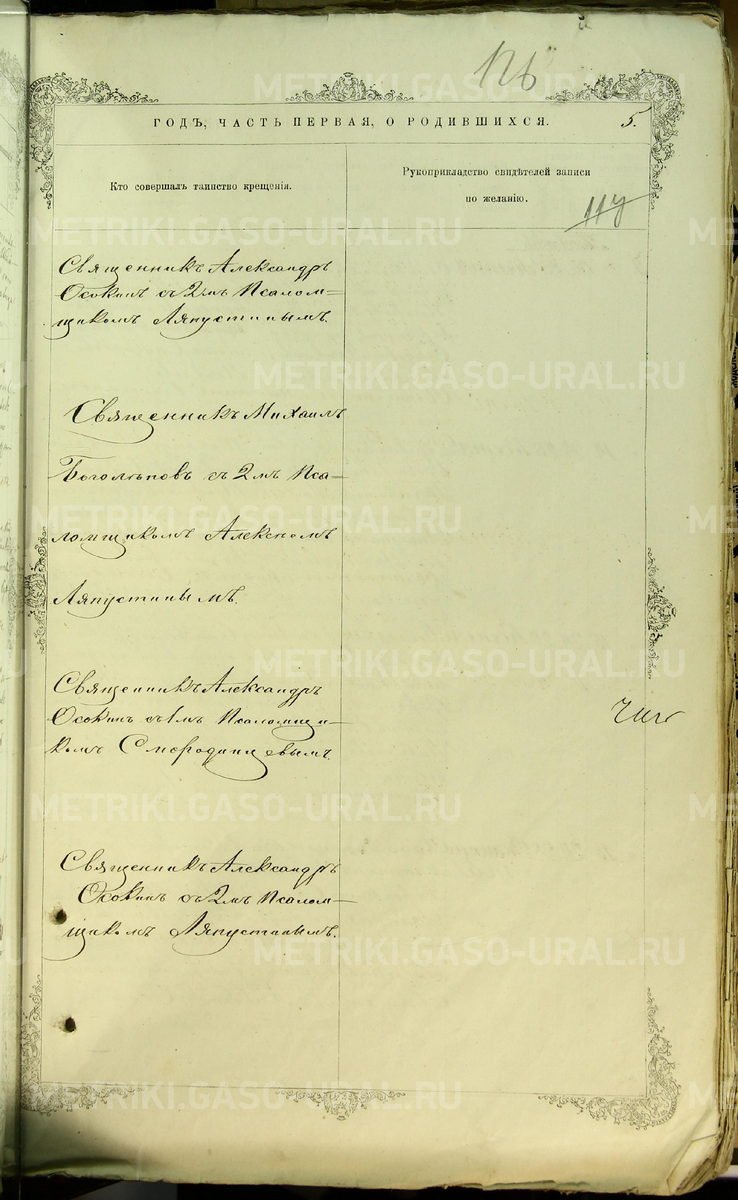 126
ГОДЪ, ЧАСТЬ ПЕРВАЯ, О РОДИВШИХСЯ.
5.
Кто совершалъ таинство крещенія.
Рукоприкладство свидѣтелей записи
по желанію.
117
Священникъ Александръ
Осокинъ съ 2мъ Псалом=
щикомъ Ляпустинымъ.
Священникъ Михаилъ
Боголѣповъ съ 2мъ Пса—
ломщикомъ Алексѣемъ
Ляпустинымъ.
Священникъ Александръ
Осокинъ съ 1мъ Псаломщи—
комъ Смородинцевымъ.
Священникъ Александръ
Осокинъ съ 2мъ Псалом—
щикомъ Ляпустинымъ.
METRIKI.GASO-URAL.RU